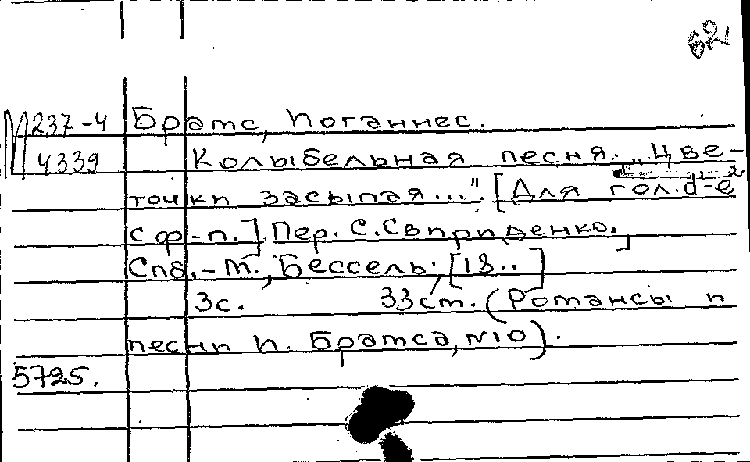 62
М 237-4 Брамс, Иоганнес.
4339 Колыбельная песня. „Цве-
точки засыпая...". [Для гол. d¹-e²
с ф-п.]. Пер. С. Свириденко.
Спб.-М., Бессель, [18..]
3с. 33см. (Романсы и
песни И. Брамса, №10).
5725.